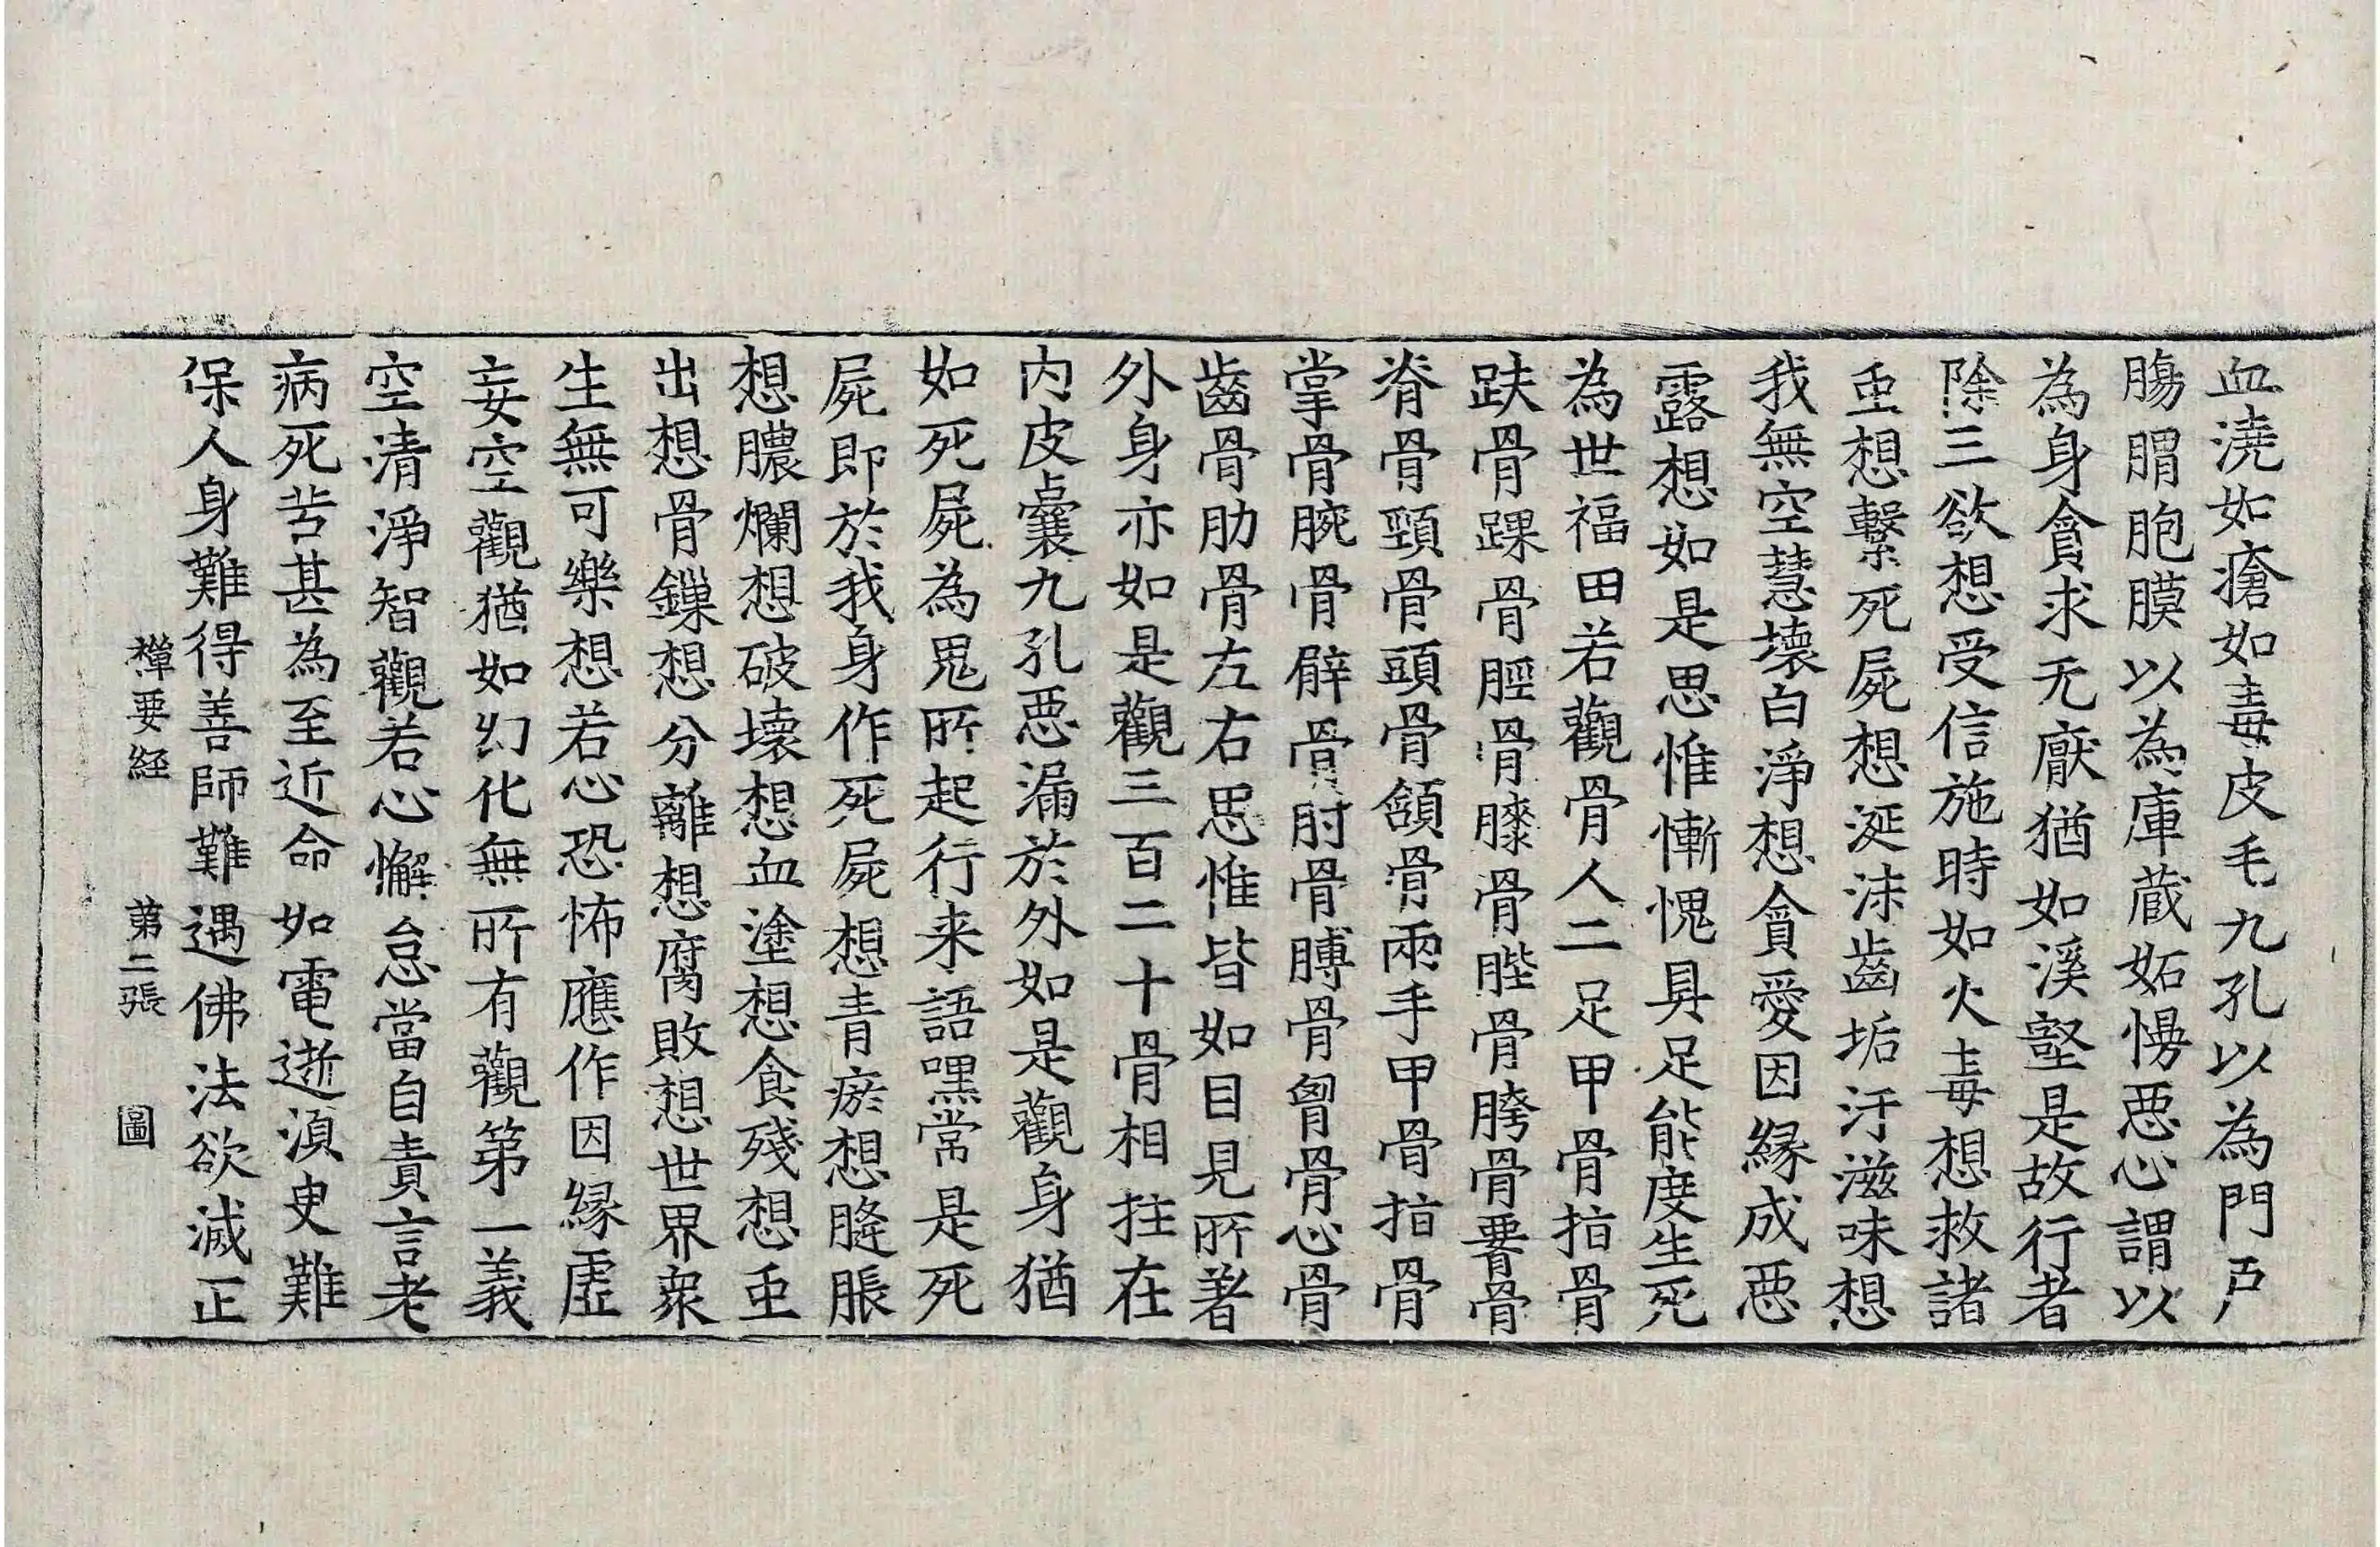 血澆如瘡如毒皮毛九孔以為門戶
腸胃胞膜以為庫蔵妬慢惡心謂以
為身貪求无厭猶如溪壑是故行者
除三欲想受信施時如火毒想救諸
虫想繫死屍想涎沫齒垢汙滋味想
我無空慧壞白淨想貪愛因緣成惡
露想如是思惟慚愧具足能度生死
為世福田若觀骨人二足甲骨指骨
趺骨踝骨脛骨膝骨䏶骨胯骨𦝫骨
脊骨頸骨頭骨頷骨兩手甲骨指骨
掌骨腕骨臂骨肘骨膊骨胷骨心骨
齒骨肋骨左右思惟皆如目見所著
外身亦如是觀三百二十骨相拄在
內皮囊九孔惡漏於外如是觀身猶
如死屍為鬼所起行来語嘿常是死
屍即於我身作死屍想青瘀想膖脹
想膿爛想破壞想血塗想食殘想虫
出想骨鏁想分離想腐敗想世界衆
生無可樂想若心恐怖應作因緣虛
妄空觀猶如幻化無所有觀第一義
空清淨智觀若心懈怠當自責言老
病死苦甚為至近命如電逝湏臾難
保人身難得善師難遇佛法欲滅正
禪要經　第二張　圖